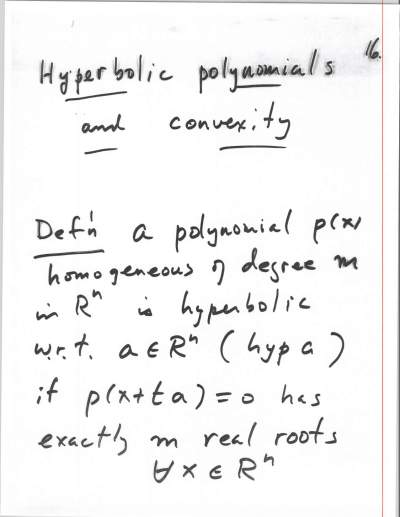 16.
Hyperbolic polynomials
and convexity
Def'n a polynomial p(x)
homogeneous of degree m
in Rⁿ is hyperbolic
w.r.t. a ∈ Rⁿ (hyp a)
if p(x+ta)=0 has
exactly m real roots
∀ x ∈ Rⁿ